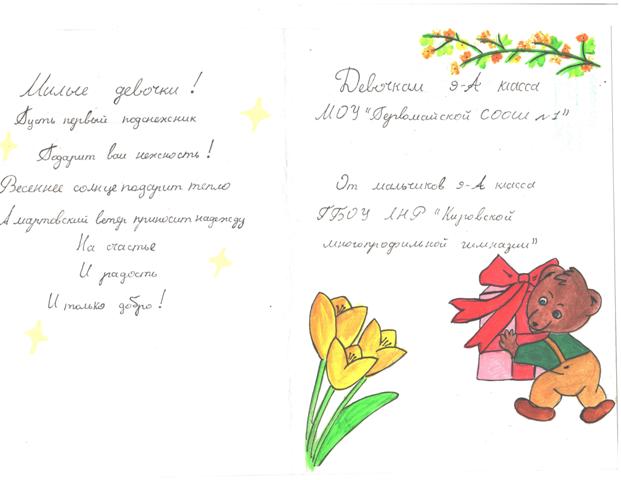 Милые девочки!
Пусть первый подснежник
Подарит вам нежность!
Весеннее солнце подарит тепло
А мартовский ветер приносит надежду
На счастье
И радость
И только добро!
Девочкам 9-А класса
МОУ "Первомайской СООШ №1"
От мальчиков 9-А класса
ГБОУ ЛНР "Кировской
многопрофильной гимназии"